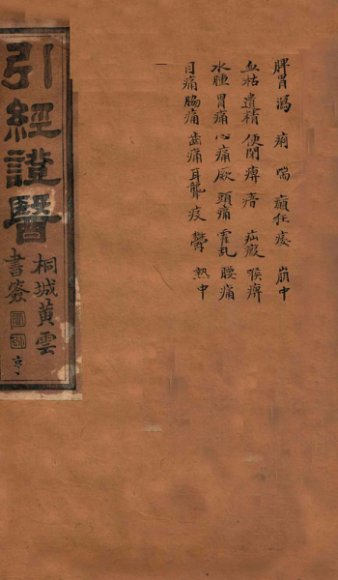 脾胃 瀉 痢 喘 癲狂 痿 崩中
血枯 遺精 便閉 痺 瘖 疝瘕 喉痺
水腫 胃痛 心痛 厥 頭痛 霍亂 腰痛
目痛 腸痛 齒痛 耳聾 疫 鬱 熱中
引經證醫
桐城黃雲
書簽